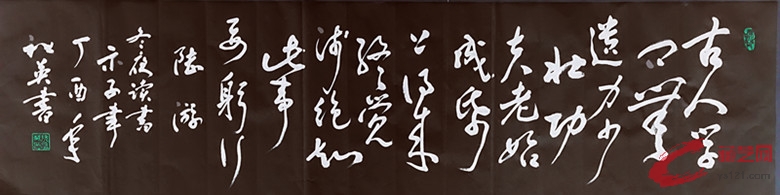 古人学
问無
遗力少
壮功
夫老始
成纸
上得来
终觉
浅绝知
此事
要躬行
陆游
冬夜读书
示子聿
丁酉年
英書